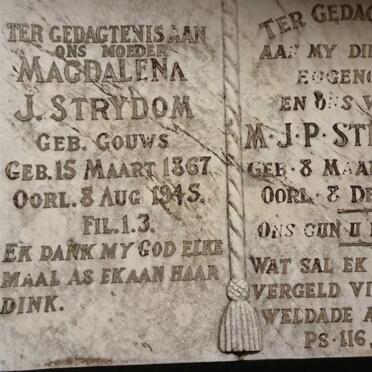 TER GEDAGTENIS AAN
ONS MOEDER
MAGDALENA
J. STRYDOM
GEB. GOUWS
GEB. 15 MAART 1867
OORL. 8 AUG 1945.
FIL. 1.3.
EK DANK MY GOD ELKE
MAAL AS EK AAN HAAR
DINK.
TER
AAN MY
EN ONS
M.J.P.
GEB. 8
OORL. 8
ONS GUN U
WAT SAL EK
VERGELD
WELDADE
PS. 116,